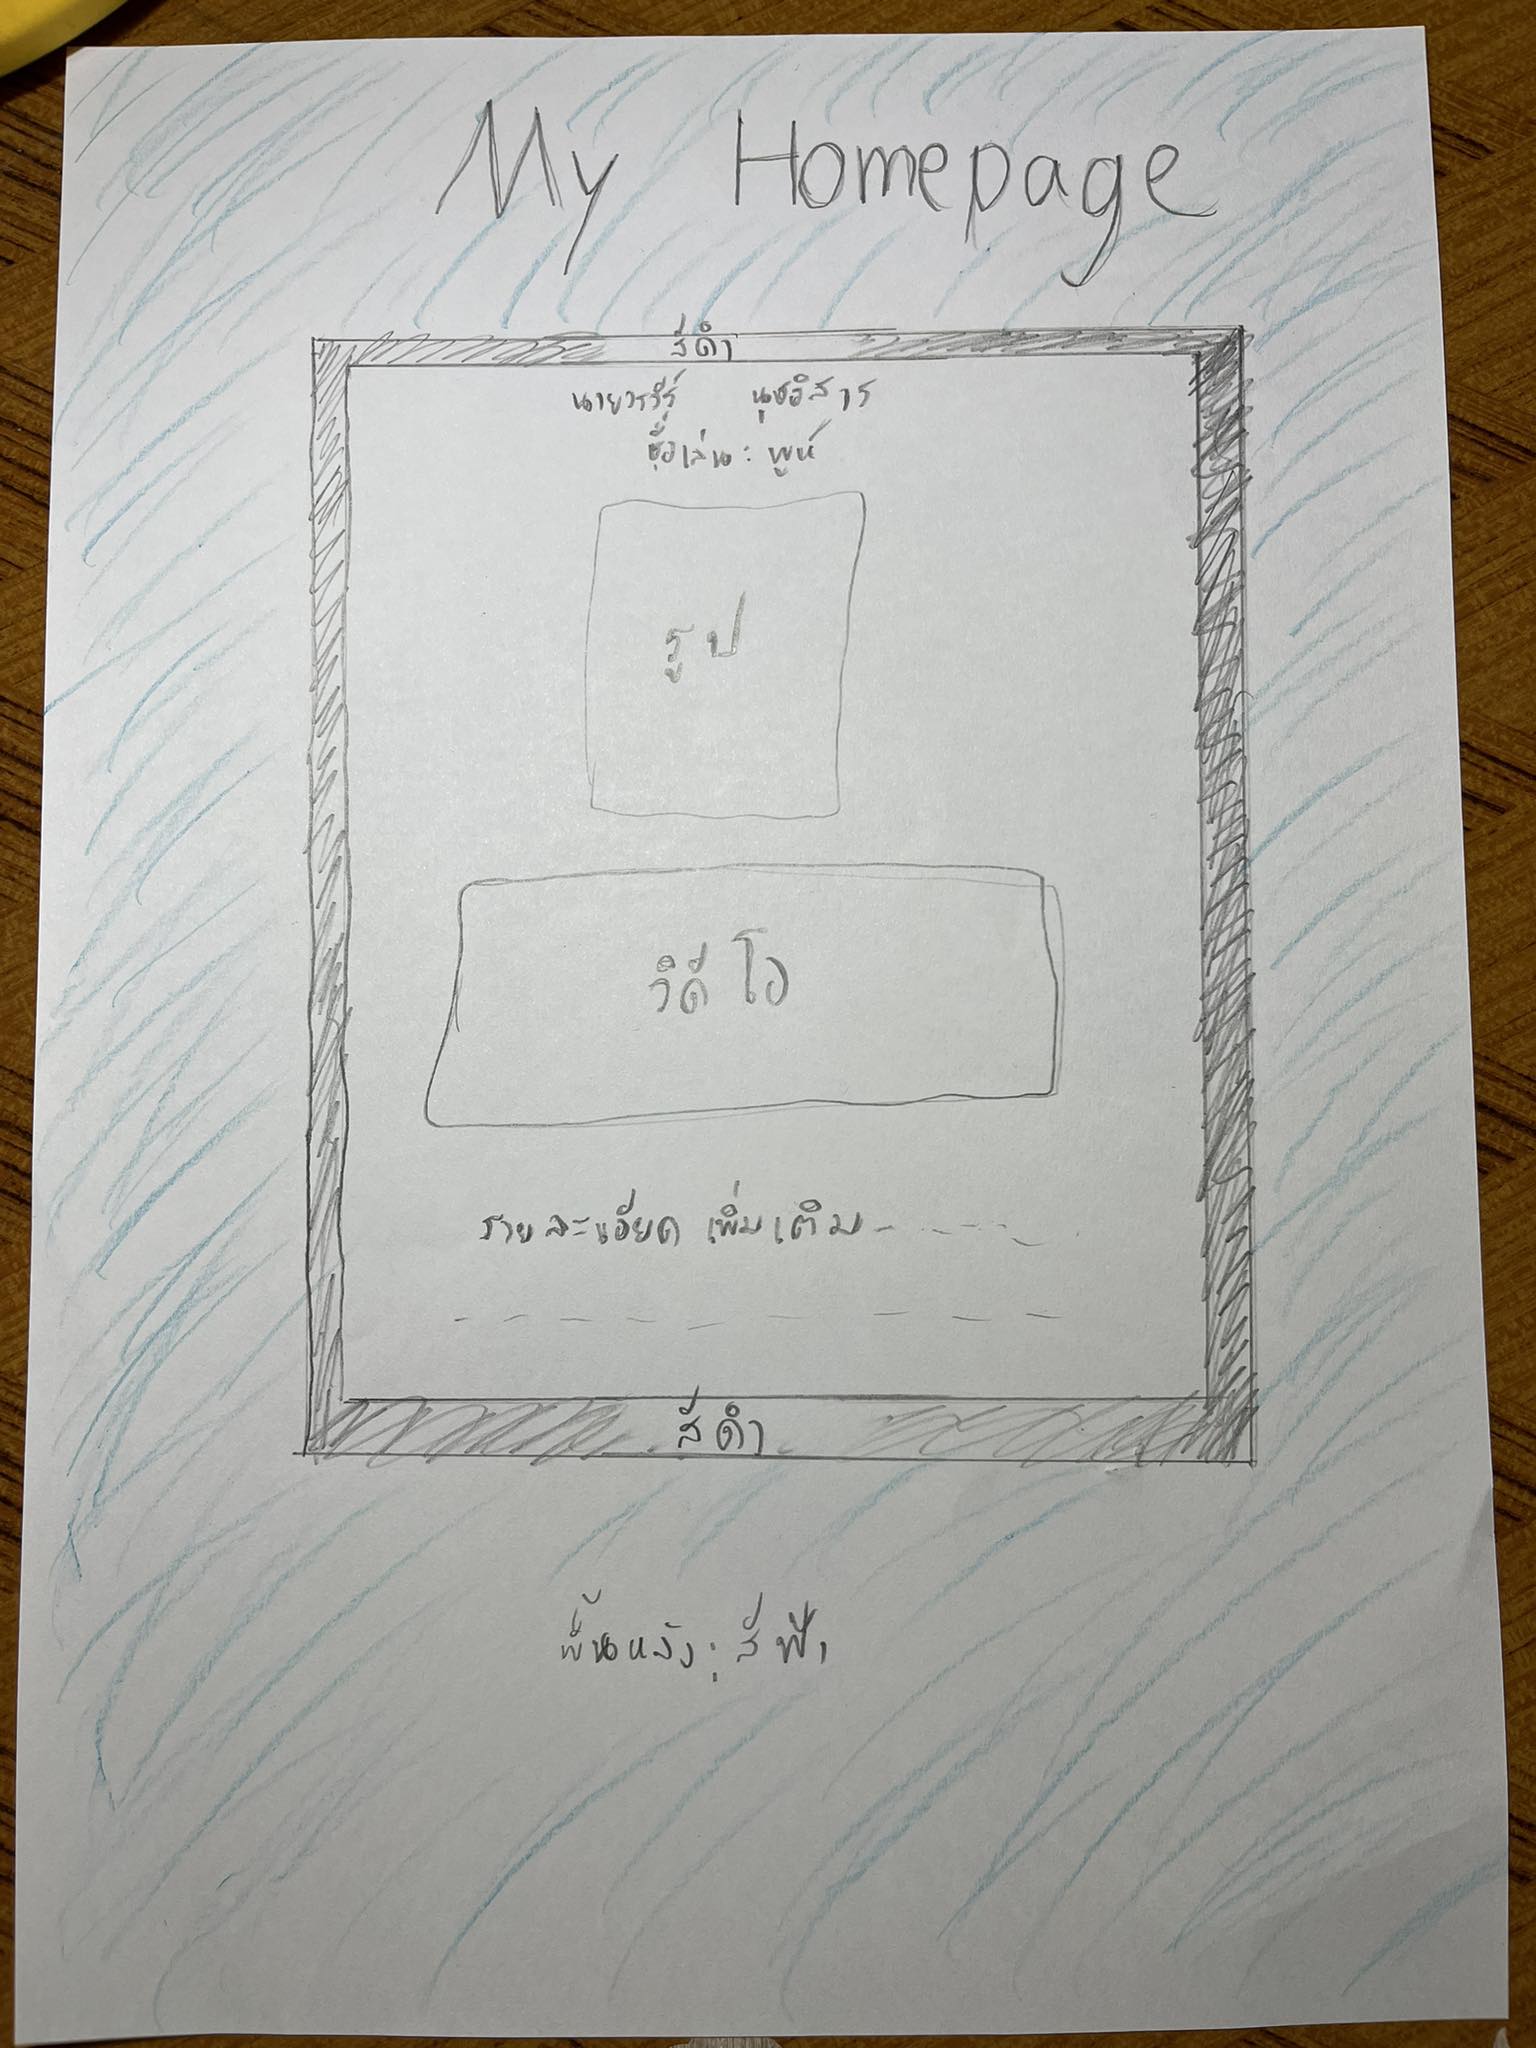 My Homepage
สีดำ
นายวรวีร์ นุชอิสาร
ชื่อเล่น: พูห์
รูป
วิดีโอ
รายละเอียด เพิ่มเติม
สีดำ
พื้นหลัง: สีฟ้า